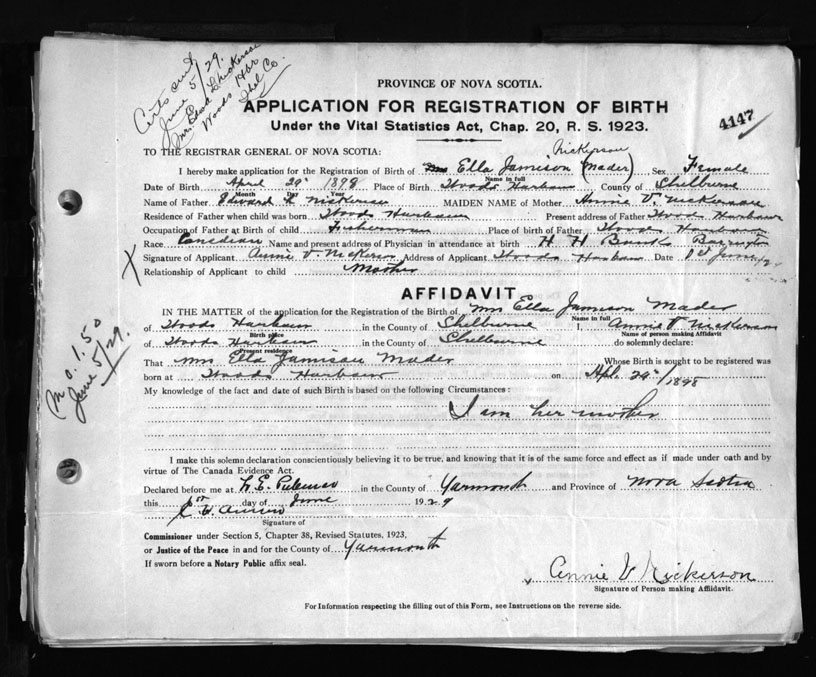 Certs sent
June 5/29.
Mrs. Edward Nickerson
Woods Hbr
Shel Co.
4147
PROVINCE OF NOVA SCOTIA.
APPLICATION FOR REGISTRATION OF BIRTH
Under the Vital Statistics Act, Chap. 20, R. S. 1923.
TO THE REGISTRAR GENERAL OF NOVA SCOTIA:
Nickerson
I hereby make application for the Registration of Birth of Ella Jamison (Mader) Sex Female
Name in full
Date of Birth April 29 1898 Place of Birth Woods Harbour County of Shelburne
Month Day Year
Name of Father Edward Nickerson MAIDEN NAME of Mother Annie V. Nickerson
Residence of Father when child was born Woods Harbour Present address of Father Woods Harbour
Occupation of Father at Birth of child Fisherman Place of birth of Father Woods Harbour
Race Canadian Name and present address of Physician in attendance at birth H H Banks Barrington
Signature of Applicant Annie V. Nickerson Address of Applicant Woods Harbour Date 1st June
Relationship of Applicant to child Mother
X
AFFIDAVIT
IN THE MATTER of the application for the Registration of the Birth of Mrs Ella Jamison Mader
Name in full
of Woods Harbour in the County of Shelburne I, Annie V. Nickerson
Birth place Name of person making Affidavit
of Woods Harbour in the County of Shelbourne do solemnly declare:
Present residence
That Mrs Ella Jamison Mader Whose Birth is sought to be registered was
born at Woods Harbour on Apl. 29/1898
My knowledge of the fact and date of such Birth is based on the following Circumstances:
I am her mother
M O. 1.50
June 5/29.
I make this solemn declaration conscientiously believing it to be true, and knowing that it is of the same force and effect as if made under oath and by
virtue of The Canada Evidence Act.
Declared before me at in the County of Yarmouth and Province of Nova Scotia
this 1st day of June 1929
Signature of
Commissioner under Section 5, Chapter 38, Revised Statutes, 1923,
or Justice of the Peace in and for the County of Yarmouth
If sworn before a Notary Public affix seal.
Annie V Nickerson
Signature of Person making Affidavit.
For Information respecting the filling out of this Form, see Instructions on the reverse side.